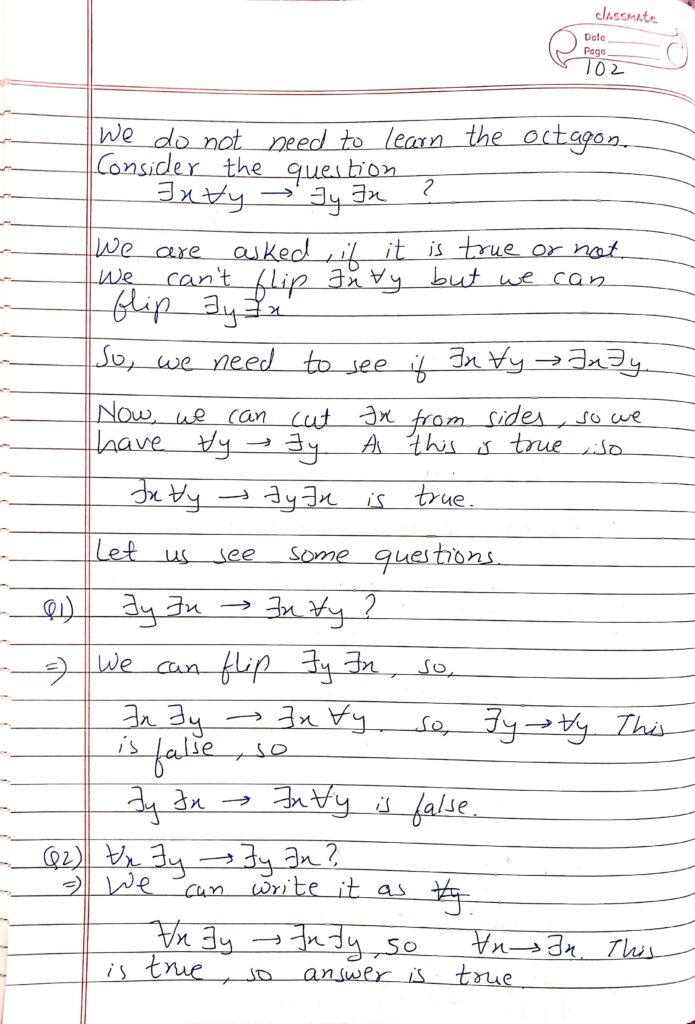 classmate
Date
Page
102
We do not need to learn the octagon.
Consider the question
∃x ∀y → ∃y ∃x ?
We are asked, if it is true or not.
We can't flip ∃x ∀y but we can
flip ∃y ∃x
So, we need to see if ∃x ∀y → ∃x ∃y.
Now, we can cut ∃x from sides, so we
have ∀y → ∃y. As this is true, so
∃x ∀y → ∃y ∃x is true.
Let us see some questions.
Q1) ∃y ∃x → ∃x ∀y ?
⇒ We can flip ∃y ∃x, so,
∃x ∃y → ∃x ∀y. so, ∃y → ∀y. This
is false, so
∃y ∃x → ∃x ∀y is false.
Q2) ∀x ∃y → ∃y ∃x ?
⇒ We can write it as ∀y
∀x ∃y → ∃x ∃y, so ∀x → ∃x. This
is true, so answer is true.